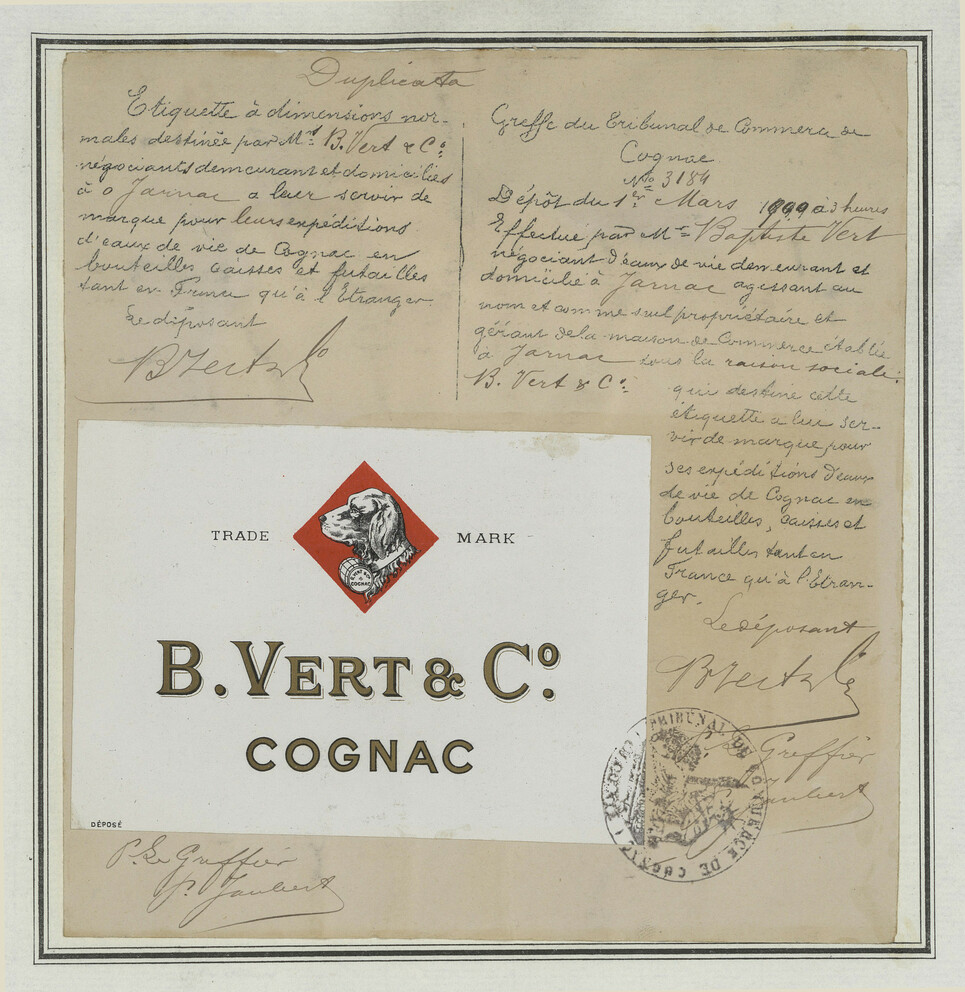 Duplicata
Etiquette à dimensions nor-
males destinée par Mrs B. Vert & Co.
négociants demeurant et domiciliés
à Jarnac a leur servir de
marque pour leurs expéditions
d'eaux de vie de Cognac en
bouteilles caisses et futailles
tant en France qu'à l'Etranger.
Le déposant
B Vert & Co
Greffe du Tribunal de Commerce de
Cognac
No 3184
Dépôt du 1er Mars à 3 heures
Effectué par Mr Baptiste Vert
négociant d'eaux de vie demeurant et
domicilié à Jarnac agissant au
nom et comme seul propriétaire et
gérant de la maison de Commerce établie
à Jarnac sous la raison sociale:
B. Vert & Co.
qui destine cette
étiquette a lui ser-
vir de marque pour
ses expéditions d'eaux
de vie de Cognac en
bouteilles, caisses et
futailles tant en
France qu'à l'Etran-
ger.
Le déposant
B Vert & Co
Le Greffier
Jaubert
TRADE MARK
B. VERT & Co
COGNAC
B. VERT & Co.
COGNAC
DÉPOSÉ
TRIBUNAL DE COMMERCE DE COGNAC
P. Le Greffier
P. Jaubert